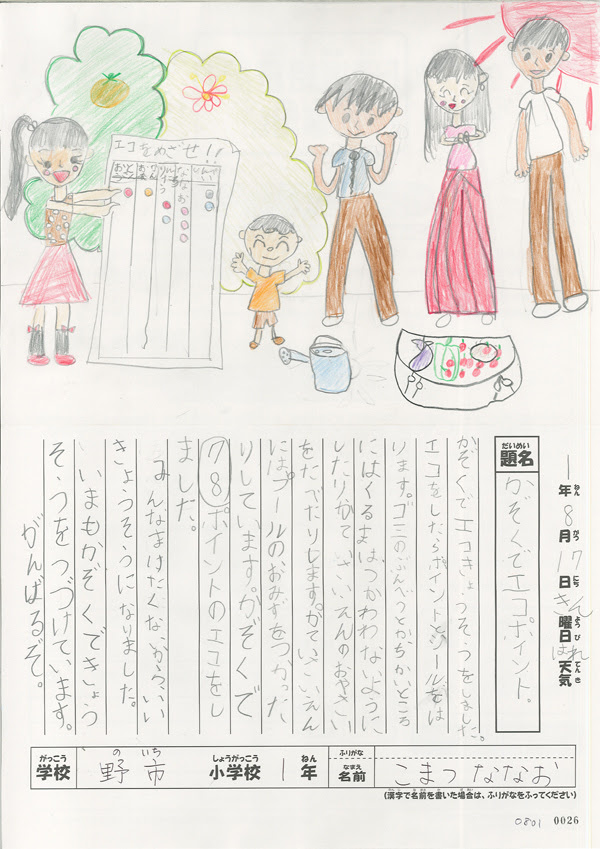 エコをめざせ!!
1年8月17日きん曜日はれ天気
ねん がつ にち ようび てんき
だいめい
題名
かぞくでエコポイント。
かぞくでエコきょうそうをしました。
エコをしたらポイントとシールをは
ります。ゴミのぶんべつとかちかいところ
にはくるまはつかわないように
したりかていさいえんのおやさい
をたべたりします。かていさいえん
にはプールのおみずをつかった
りしています。かぞくで
78ポイントのエコをし
ました。
みんなまけたくないから、いい
きょうそうになりました。
いまもかぞくできょう
そうをつづけています。
がんばるぞ。
がっこう のいち しょうがっこう ねん ふりがな
学校 野市 小学校 1年
なまえ
名前 こまつ ななお
(漢字で名前を書いた場合は、ふりがなをふってください)
0801 0026